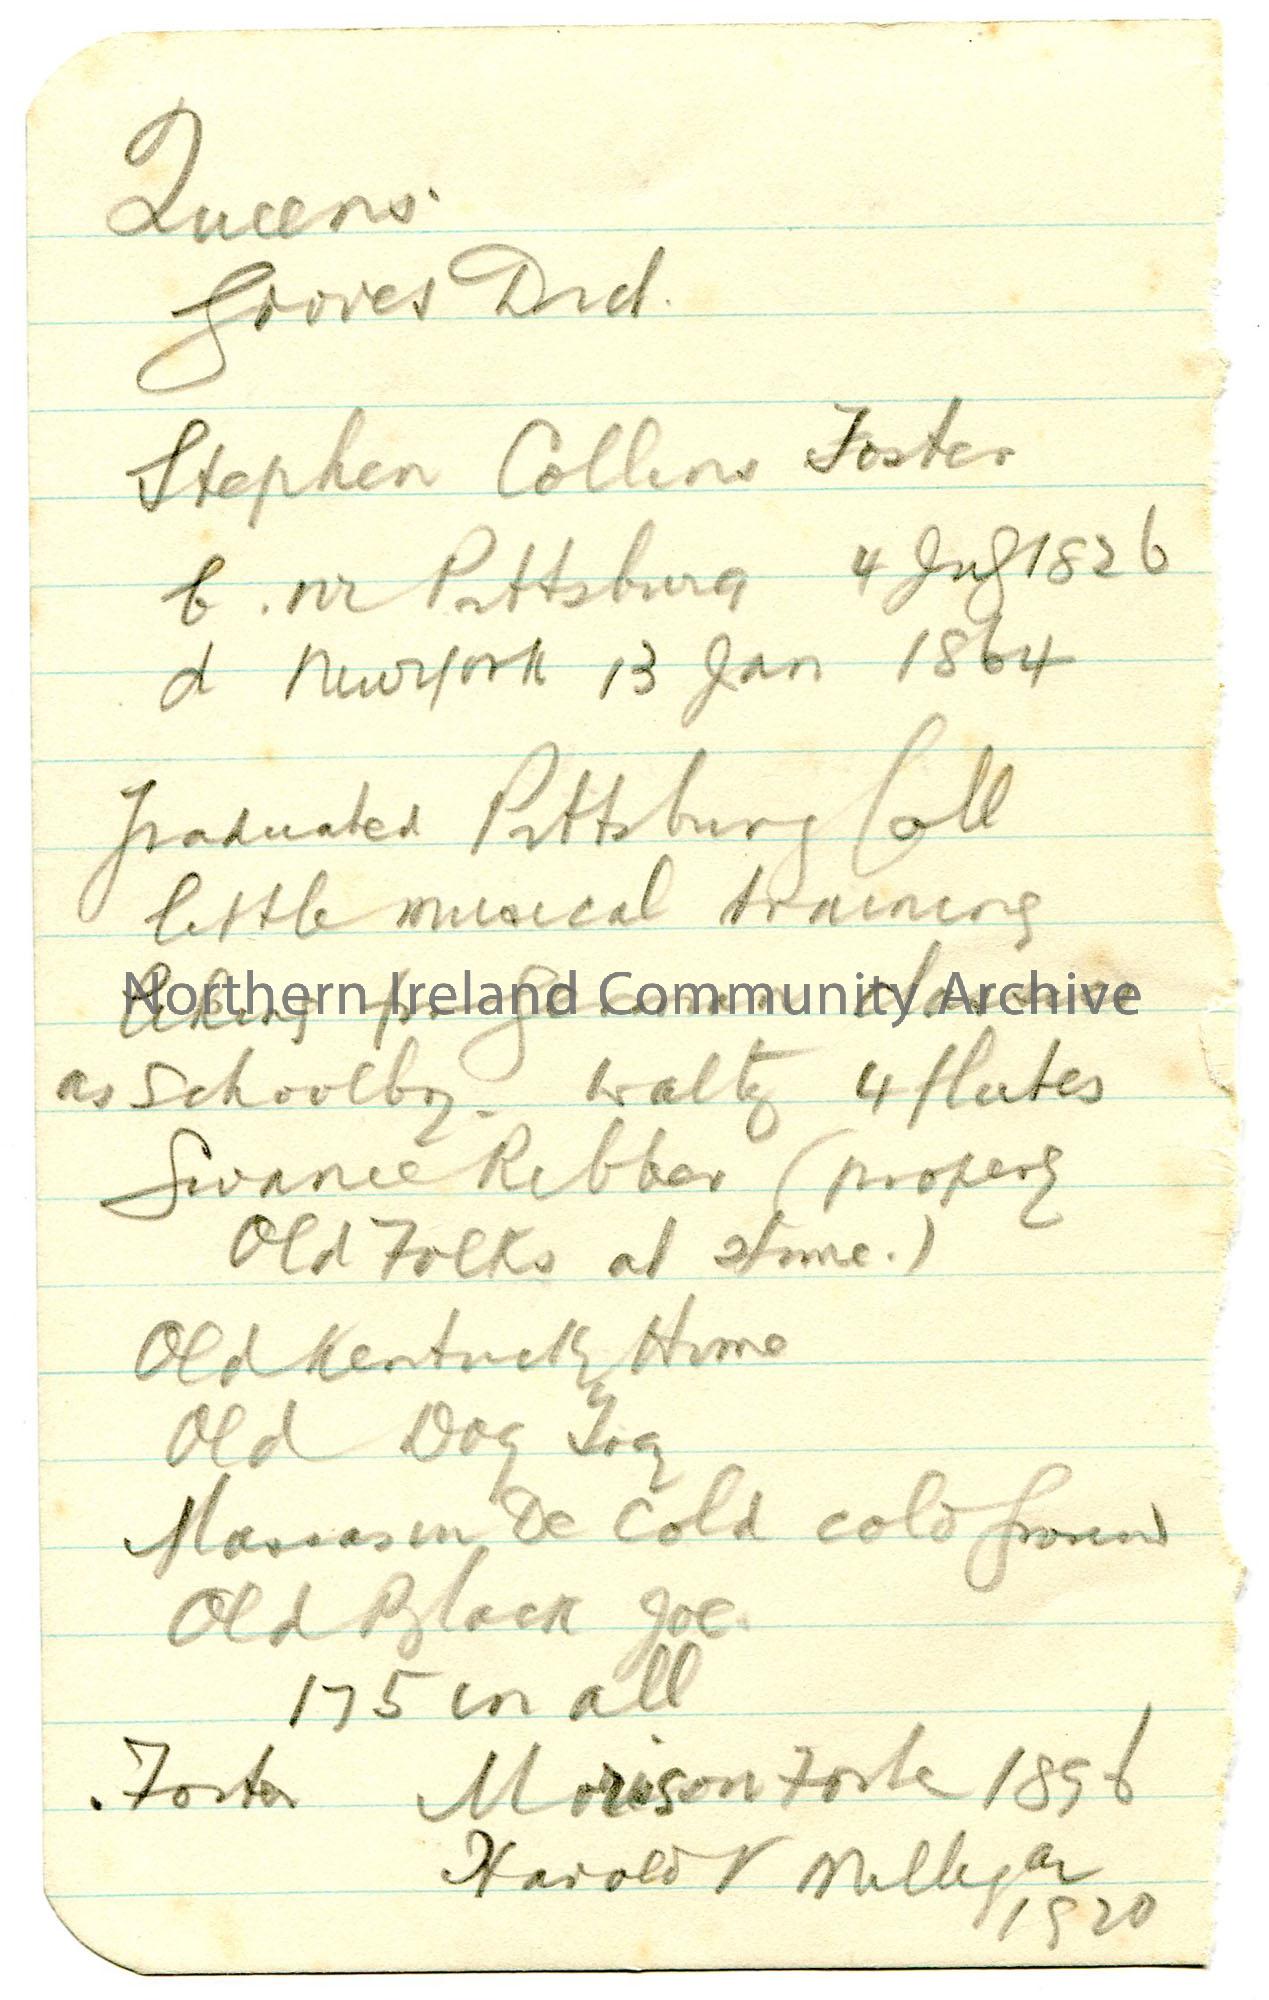 Queens.
Groves Dicd.
Stephen Collins Foster
b. nr Pittsburg 4 July 1826
d New York 13 Jan 1864
Graduated Pittsburg Coll
little musical training
liking for German classics
Northern Ireland Community Archive
as schoolboy. waltz 4 flutes
Swanee Ribber (properly
Old Folks at Home.)
Old Kentucky Home
Old Dog Tray
Massas in De Cold cold ground
Old Black Joe.
175 in all
Foster Morison Foster 1896
Harold V Milligan
1920